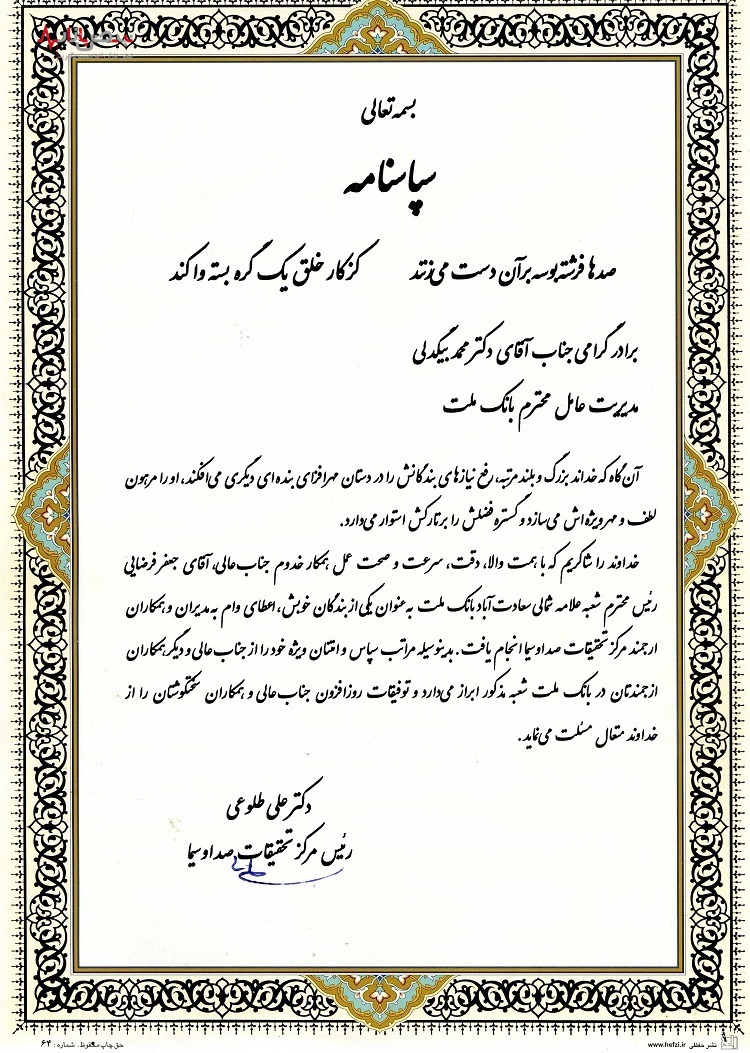 بسمه تعالی
سپاسنامه
صدها فرشته بوسه بر آن دست می‌زنند کز کار خلق یک گره بسته وا کند
برادر گرامی جناب آقای دکتر محمد بیگدلی
مدیریت عامل محترم بانک ملت
آن گاه که خداند بزرگ و بلند مرتبه، رفع نیازهای بندگانش را در دستان مهرافزای بنده‌ای دیگری می‌افکند، او را مرهون
لطف و مهر ویژه‌اش می‌سازد و گستره فضلش را بر تارکش استوار می‌دارد.
خداوند را شاکریم که با همت والا، دقت، سرعت و صحت عمل همکار خدوم جناب‌عالی، آقای جعفر فرضایی
رئیس محترم شعبه علامه شمالی سعادت آباد بانک ملت به عنوان یکی از بندگان خوبش، اعطای وام به مدیران و همکاران
ارجمند مرکز تحقیقات صدا و سیما انجام یافت. بدینوسیله مراتب سپاس و امتنان ویژه خود را از جناب‌عالی و دیگر همکاران
ازجمندتان در بانک ملت شعبه مذکور ابراز می‌دارد و توفیقات روزافزون جناب‌عالی و همکاران سختکوشتان را از
خداوند متعال مسئلت می‌نماید.
دکتر علی طلوعی
رئیس مرکز تحقیقات صدا و سیما
نشر حفظی www.hefzi.ir
حق چاپ محفوظ. شماره: ۶۴